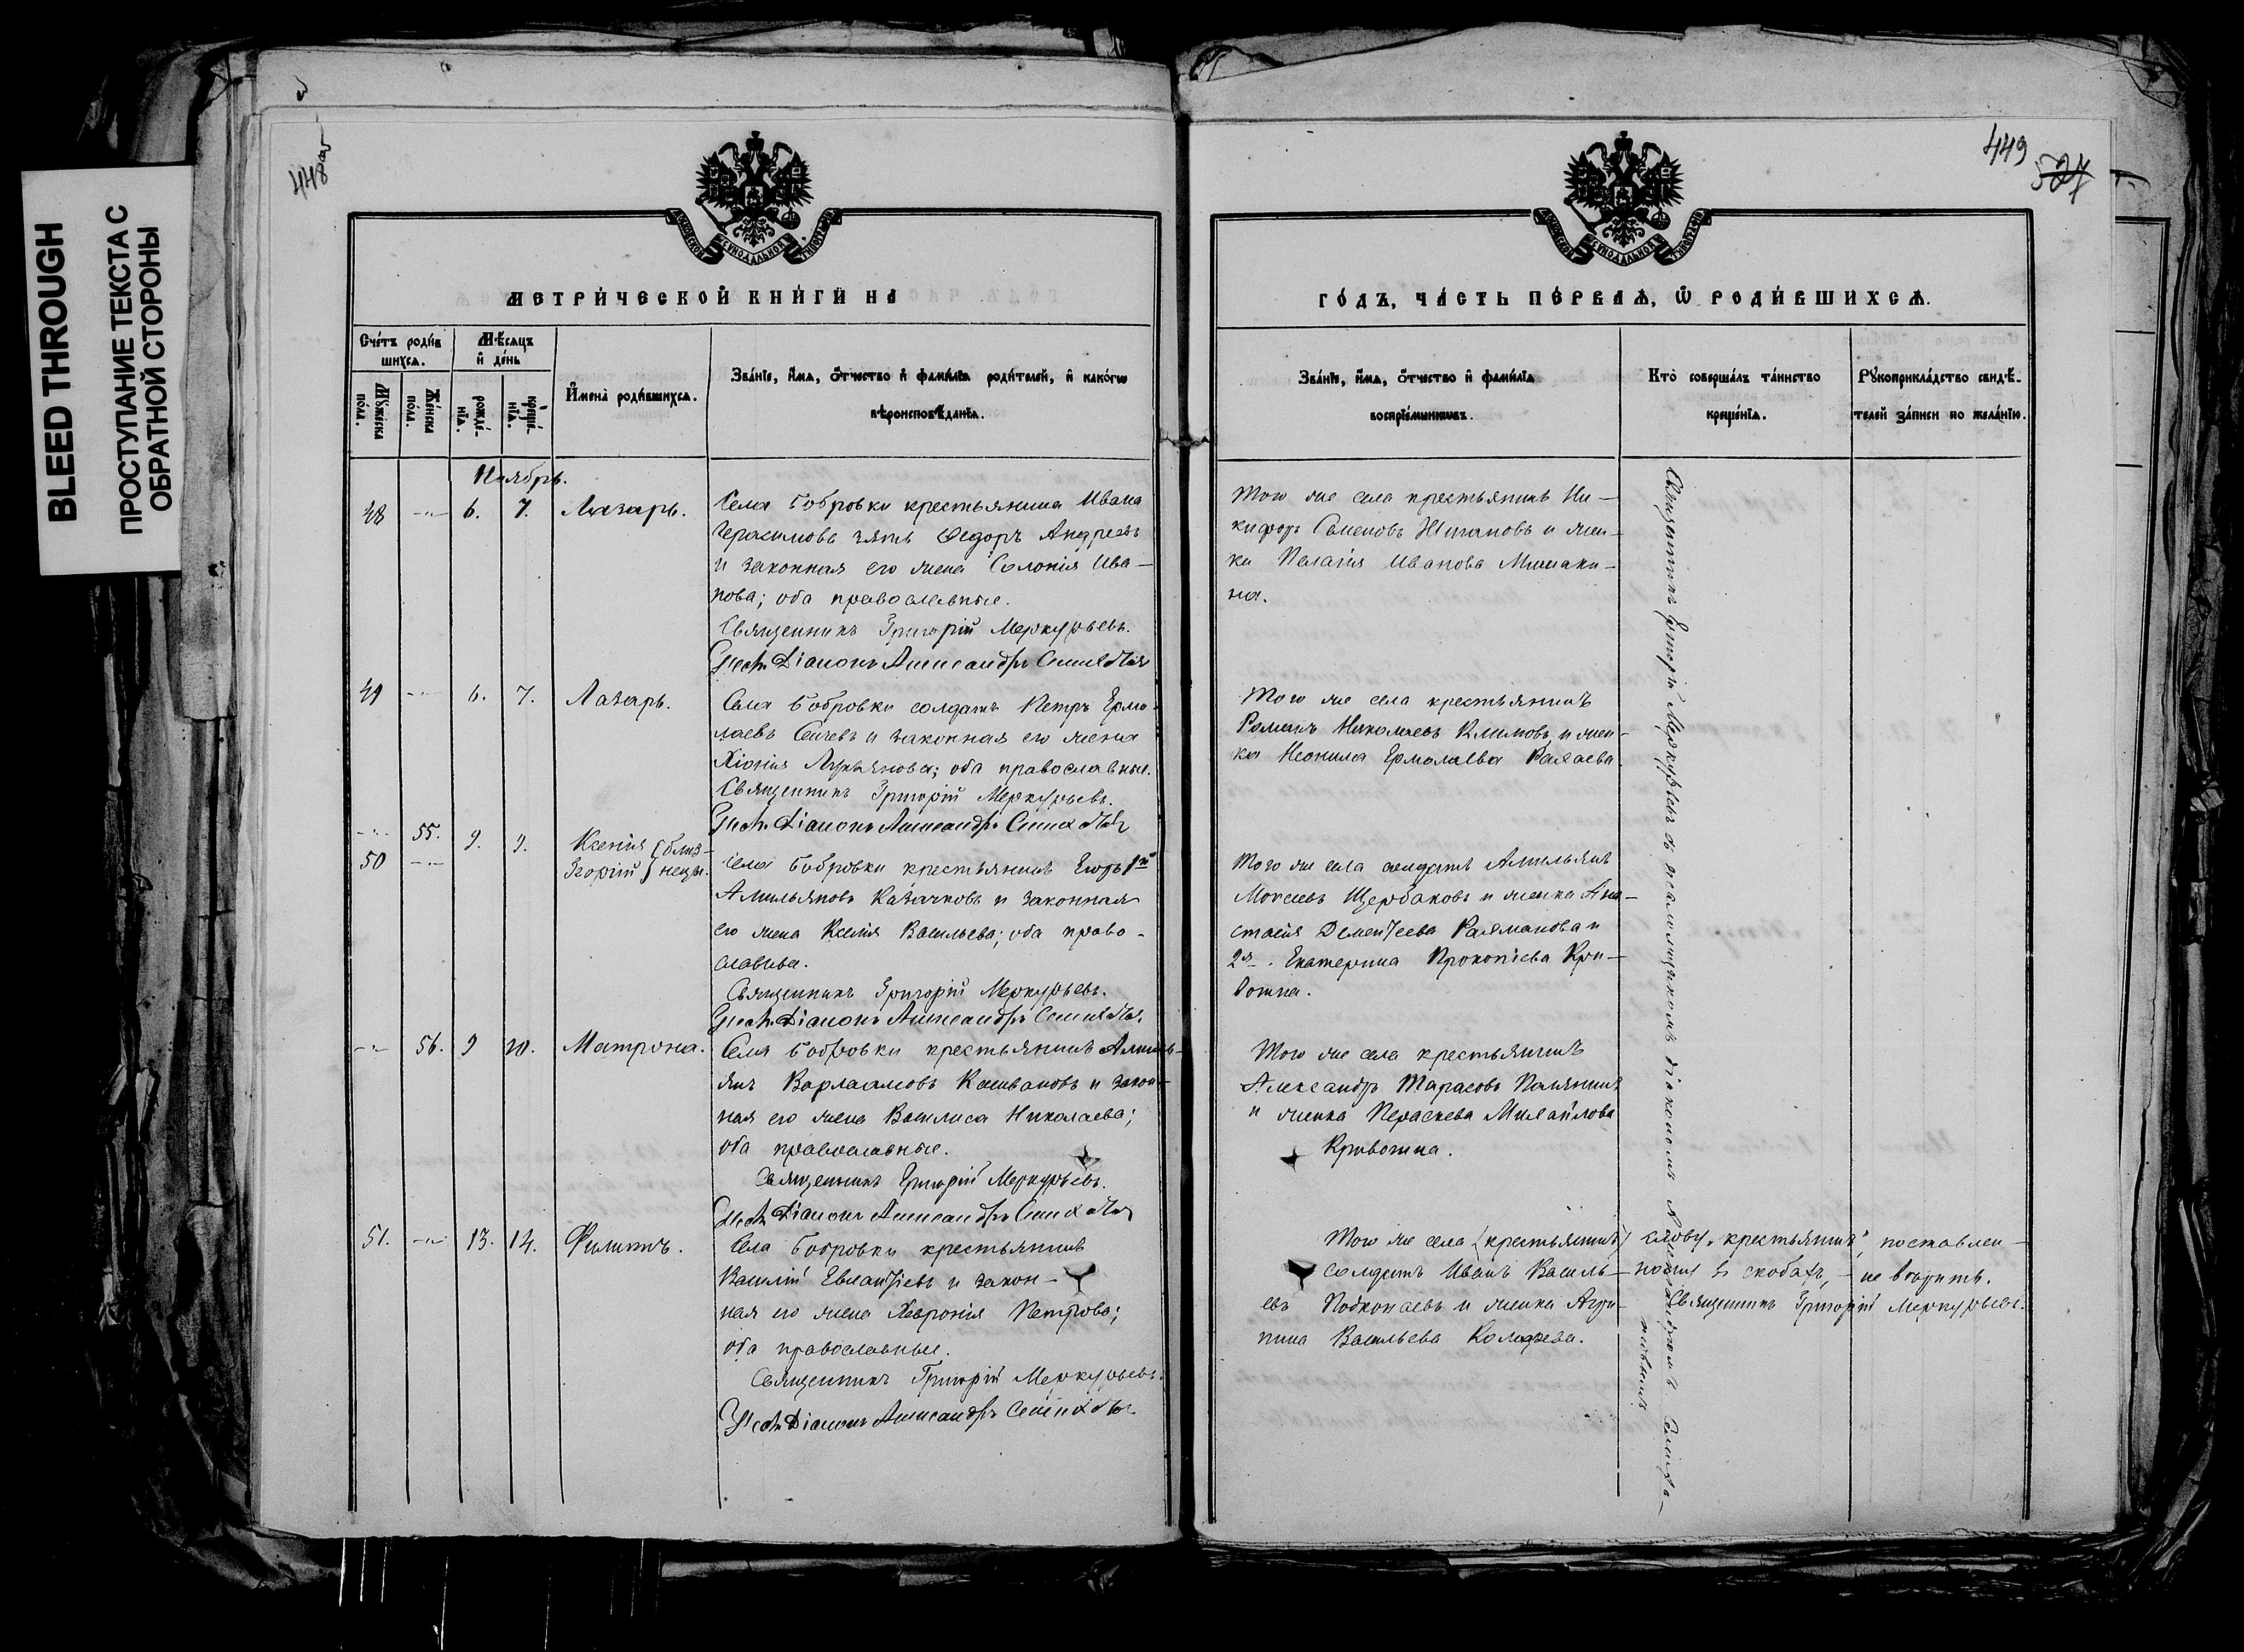 BLEED THROUGH
ПРОСТУПАНИЕ ТЕКСТА С
ОБРАТНОЙ СТОРОНЫ
448об
МЕТРИ́ЧЕСКОЙ КНИ́ГИ НА
Сче́тъ роди́в
шихся.
Мѣ́сяцъ
и҆ де́нь
Мꙋ́жеска
по́ла.
Же́нска
по́ла.
рожде́-
нїѧ.
креще́-
нїѧ.
И҆мена̀ роди́вшихся.
Зва́нїе, и҆́мя, ѻ҆́тчество и҆ фамѵ́лїя роди́телей, и҆ како́гѡ
вѣроисповѣ́данїя.
Ноябрь.
48 -„- 6. 7. Лазарь.
Села Бобровки крестьянина Ивана
Герасимова зять Ѳедоръ Андреевъ
и законная его жена Соломія Ива-
нова; оба православные.
Священникъ Григорій Меркурьевъ.
Діаконъ Александръ
49 -„- 6. 7. Лазарь.
Села Бобровки солдатъ Петръ Ермо-
лаевъ и законная его жена
Хіонія Лукьянова; оба православные.
Священникъ Григорій Меркурьевъ.
Діаконъ Александръ
-„- 55. 9. 9. Ксенія { близ-
50 -„- Егорій } нецы.
Села Бобровки крестьянинъ Егоръ 1й
Амильяновъ Казачковъ и законная
его жена Ксенія Васильева; оба право-
славные.
Священникъ Григорій Меркурьевъ.
Діаконъ Александръ
-„- 56. 9 10. Матрона.
Села Бобровки крестьянинъ Амиль-
янъ Варлаамовъ и закон-
ная его жена Василиса Николаева;
оба православные.
Священникъ Григорій Меркурьевъ.
Діаконъ Александръ
51. -„- 13. 14. Филиппъ.
Села Бобровки крестьянинъ
Василій Евлантіевъ и закон-
ная его жена Хавронія Петрова;
оба православные.
Священникъ Григорій Меркурьевъ.
Діаконъ Александръ
449
527
ГО́ДЪ, ЧА́СТЬ ПЕ́РВАЯ, Ѡ҆ РОДИ́ВШИХСЯ.
Зва́нїе, и҆́мя, ѻ҆́тчество и҆ фамѵ́лїя
воспрїе́мниковъ.
Кто̀ соверша́лъ та́инство
креще́нїя.
Рꙋкоприкла́дство свидѣ́-
телей за́писи по жела́нїю.
Того же села крестьянинъ Ни-
кифоръ Семеновъ и жен-
ка Пелагія Иванова Мишаки-
на.
Того же села крестьянинъ
Романъ Николаевъ Климовъ и жен-
ка Неонила Ермолаева
Того же села солдатъ Амильянъ
Моисеевъ Щербаковъ и женка Ана-
стасія Дементеева Рахманова и
2я. Екатерина Прокопіева Кри-
вошна.
Того же села крестьянинъ
Александръ Тарасовъ
и женка Пераскева Михайлова
Кривошна.
Того же села (крестьянинъ)
солдатъ Иванъ Василь-
евъ и женка Агри-
пина Васильева
слову „крестьянинъ", поставлен-
ному въ скобахъ, - не вѣрить.
Священникъ Григорій Меркурьевъ.
Священникъ Григорій Меркурьевъ съ псаломщикомъ діакономъ Александромъ